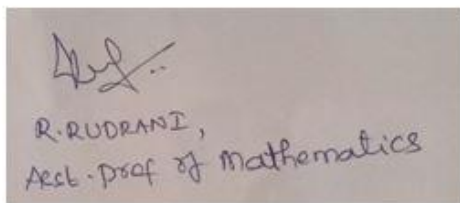 R. RUDRANI,
Asst. Prof of Mathematics